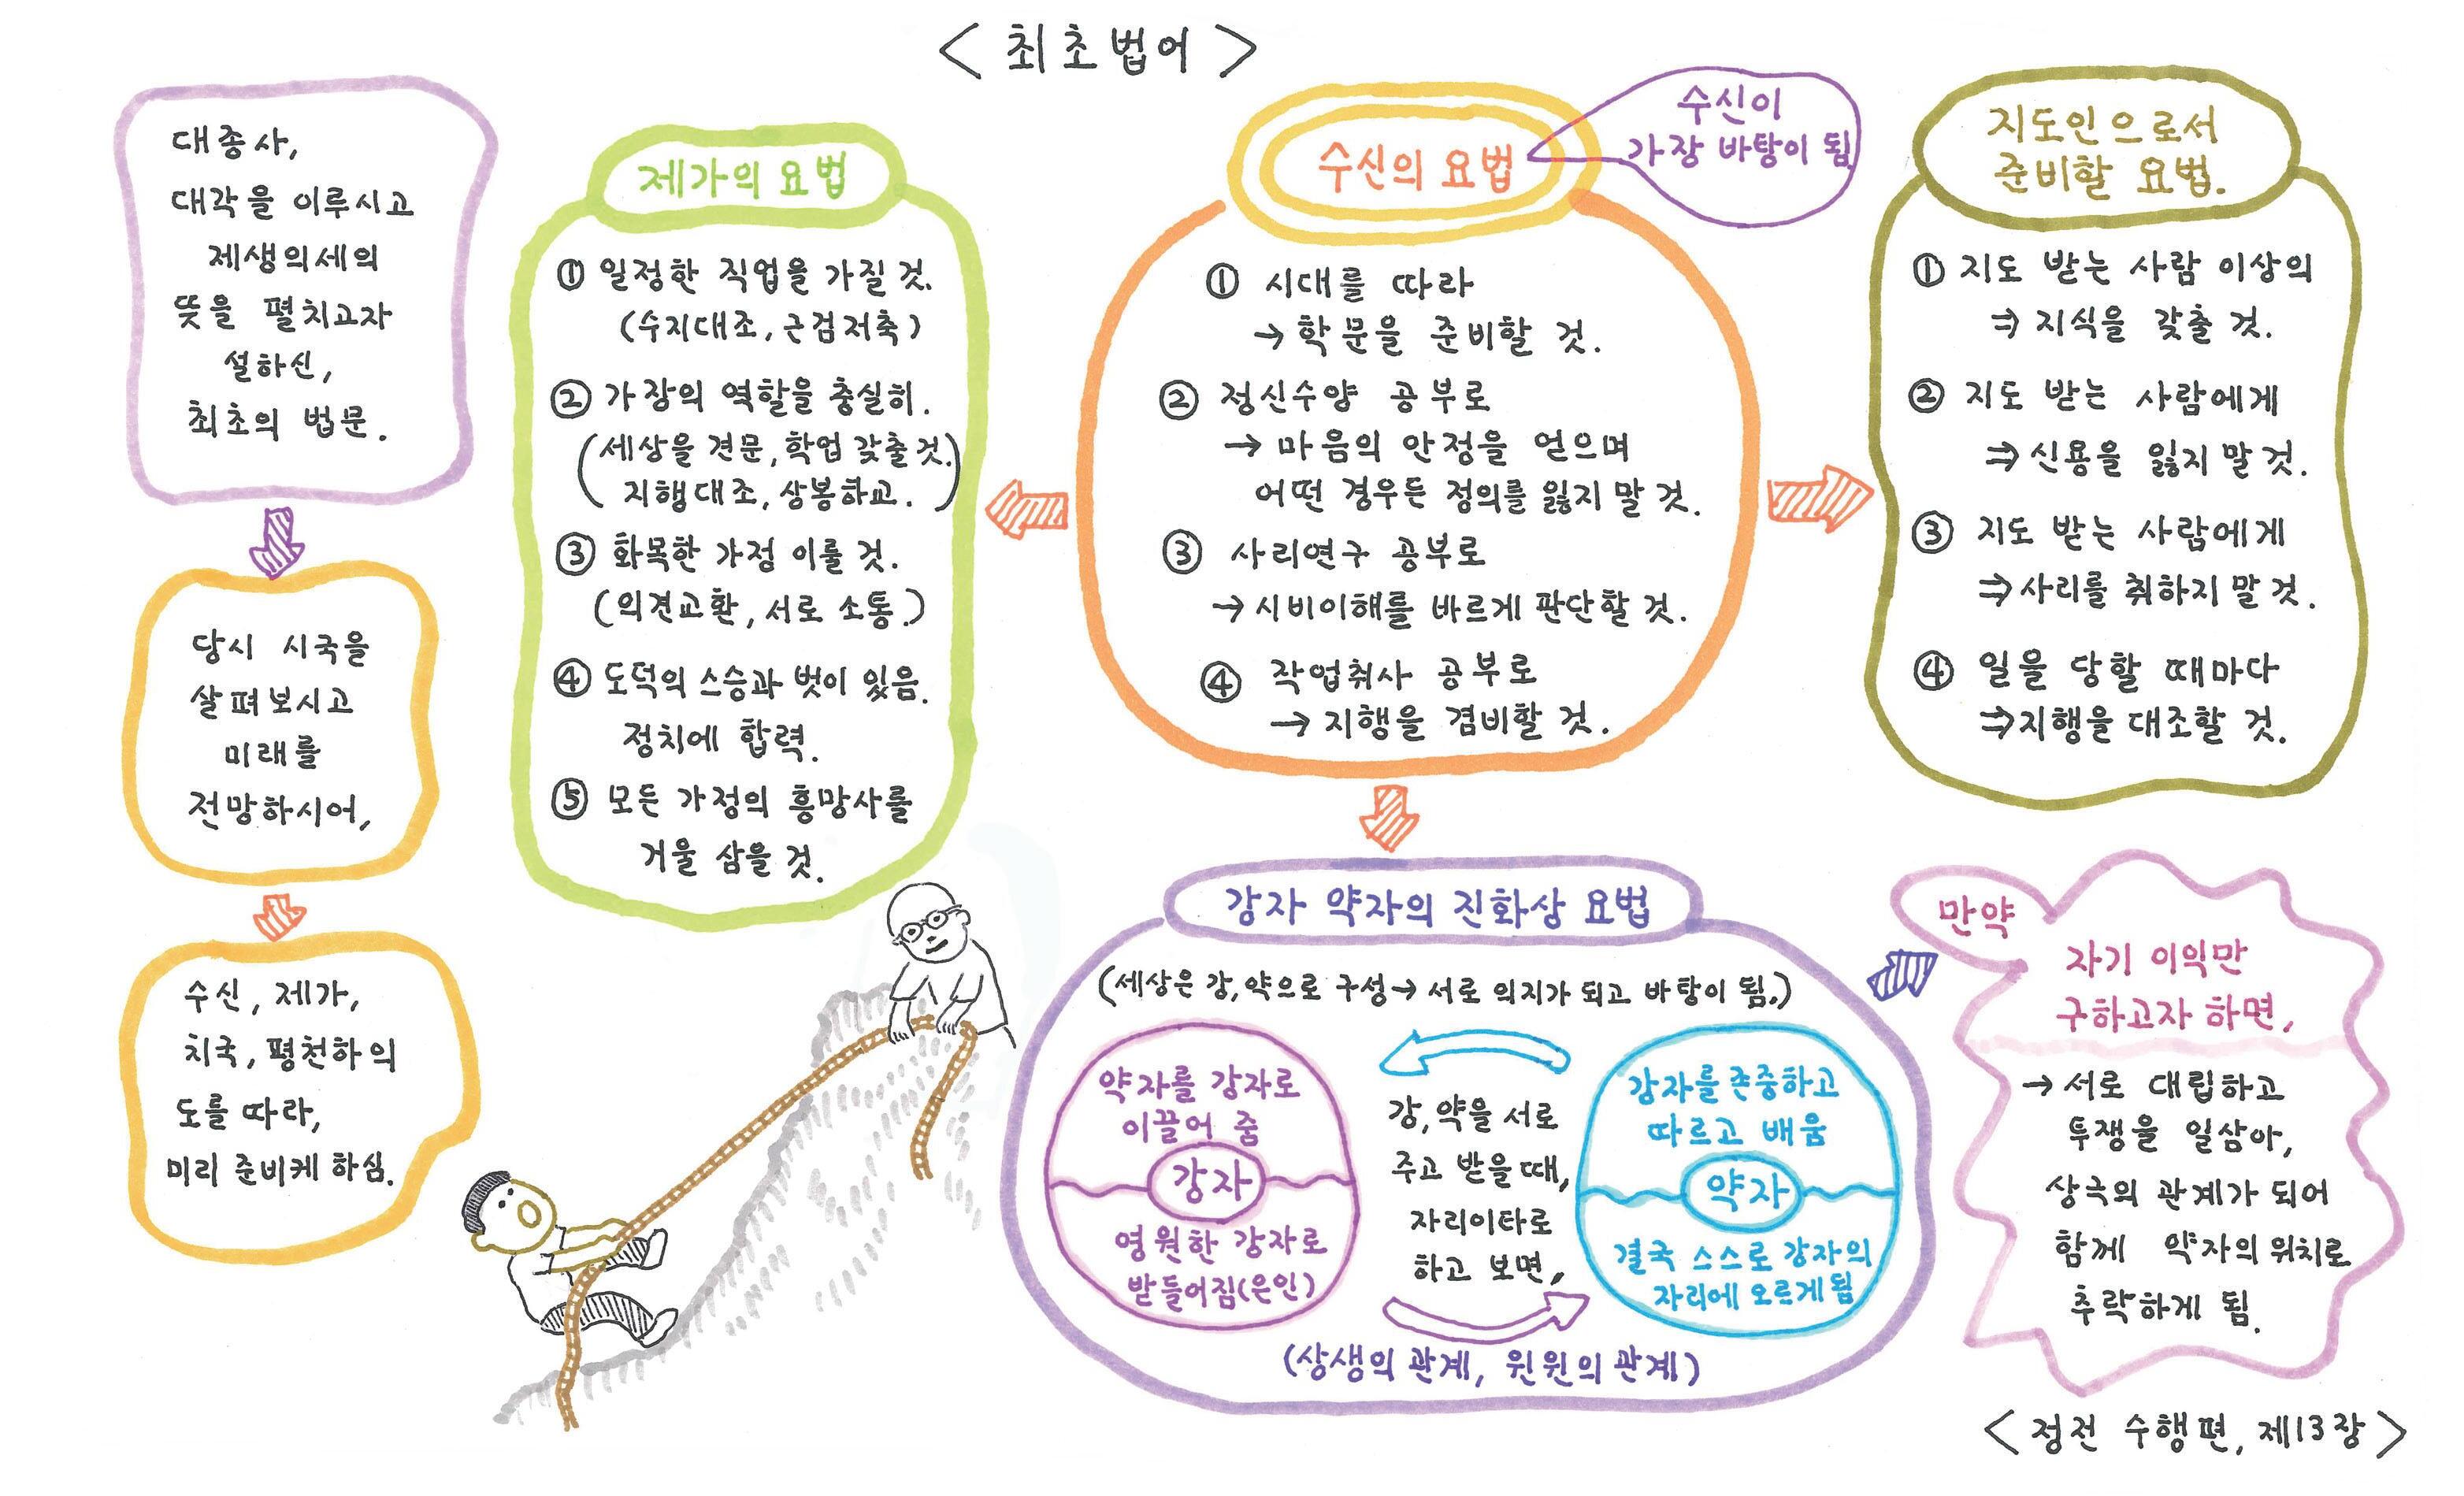 < 최초법어 >
대종사,
대각을 이루시고
제생의세의
뜻을 펼치고자
설하신,
최초의 법문.
당시 시국을
살펴보시고
미래를
전망하시어,
수신, 제가,
치국, 평천하의
도를 따라,
미리 준비케 하심.
제가의 요법
① 일정한 직업을 가질 것.
(수지대조, 근검저축)
② 가장의 역할을 충실히.
(세상을 견문, 학업 갖출 것.
지행대조, 상봉하교.)
③ 화목한 가정 이룰 것.
(의견교환, 서로 소통.)
④ 도덕의 스승과 벗이 있음.
정치에 합력.
⑤ 모든 가정의 흥망사를
거울 삼을 것.
수신의 요법
수신이
가장 바탕이 됨
① 시대를 따라
→ 학문을 준비할 것.
② 정신수양 공부로
→ 마음의 안정을 얻으며
어떤 경우든 정의를 잃지 말 것.
③ 사리연구 공부로
→ 시비이해를 바르게 판단할 것.
④ 작업취사 공부로
→ 지행을 겸비할 것.
지도인으로서
준비할 요법.
① 지도 받는 사람 이상의
⇒ 지식을 갖출 것.
② 지도 받는 사람에게
⇒ 신용을 잃지 말 것.
③ 지도 받는 사람에게
⇒ 사리를 취하지 말 것.
④ 일을 당할 때마다
⇒ 지행을 대조할 것.
강자 약자의 진화상 요법
(세상은 강, 약으로 구성 → 서로 의지가 되고 바탕이 됨.)
약자를 강자로
이끌어 줌
강자
영원한 강자로
받들어짐(은인)
강, 약을 서로
주고 받을 때,
자리이타로
하고 보면,
강자를 존중하고
따르고 배움
약자
결국 스스로 강자의
자리에 오르게 됨
(상생의 관계, 윈윈의 관계)
만약
자기 이익만
구하고자 하면,
→ 서로 대립하고
투쟁을 일삼아,
상극의 관계가 되어
함께 약자의 위치로
추락하게 됨.
< 정전 수행편, 제13장 >